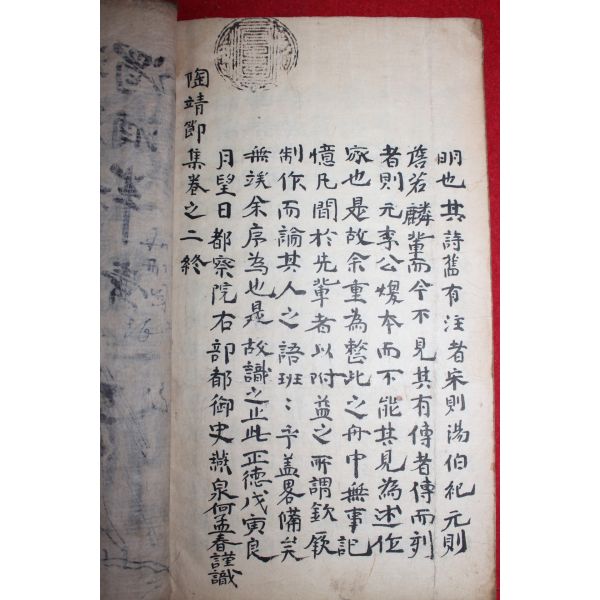 明也其詩舊有注者宋則湯伯紀元則
詹若麟輩而今不見其有傳者傳而列
者則元李公煥本而不能其見為述位
家也是故余重為整此之舟中無事記
憶凡聞於先輩者以附益之所謂欽厥
制作而論其人之語班〻乎盖畧備矣
無俟余序為也是故識之止此正德戊寅良
月望日都察院右部都御史燕泉何孟春謹識
陶靖節集卷之二終